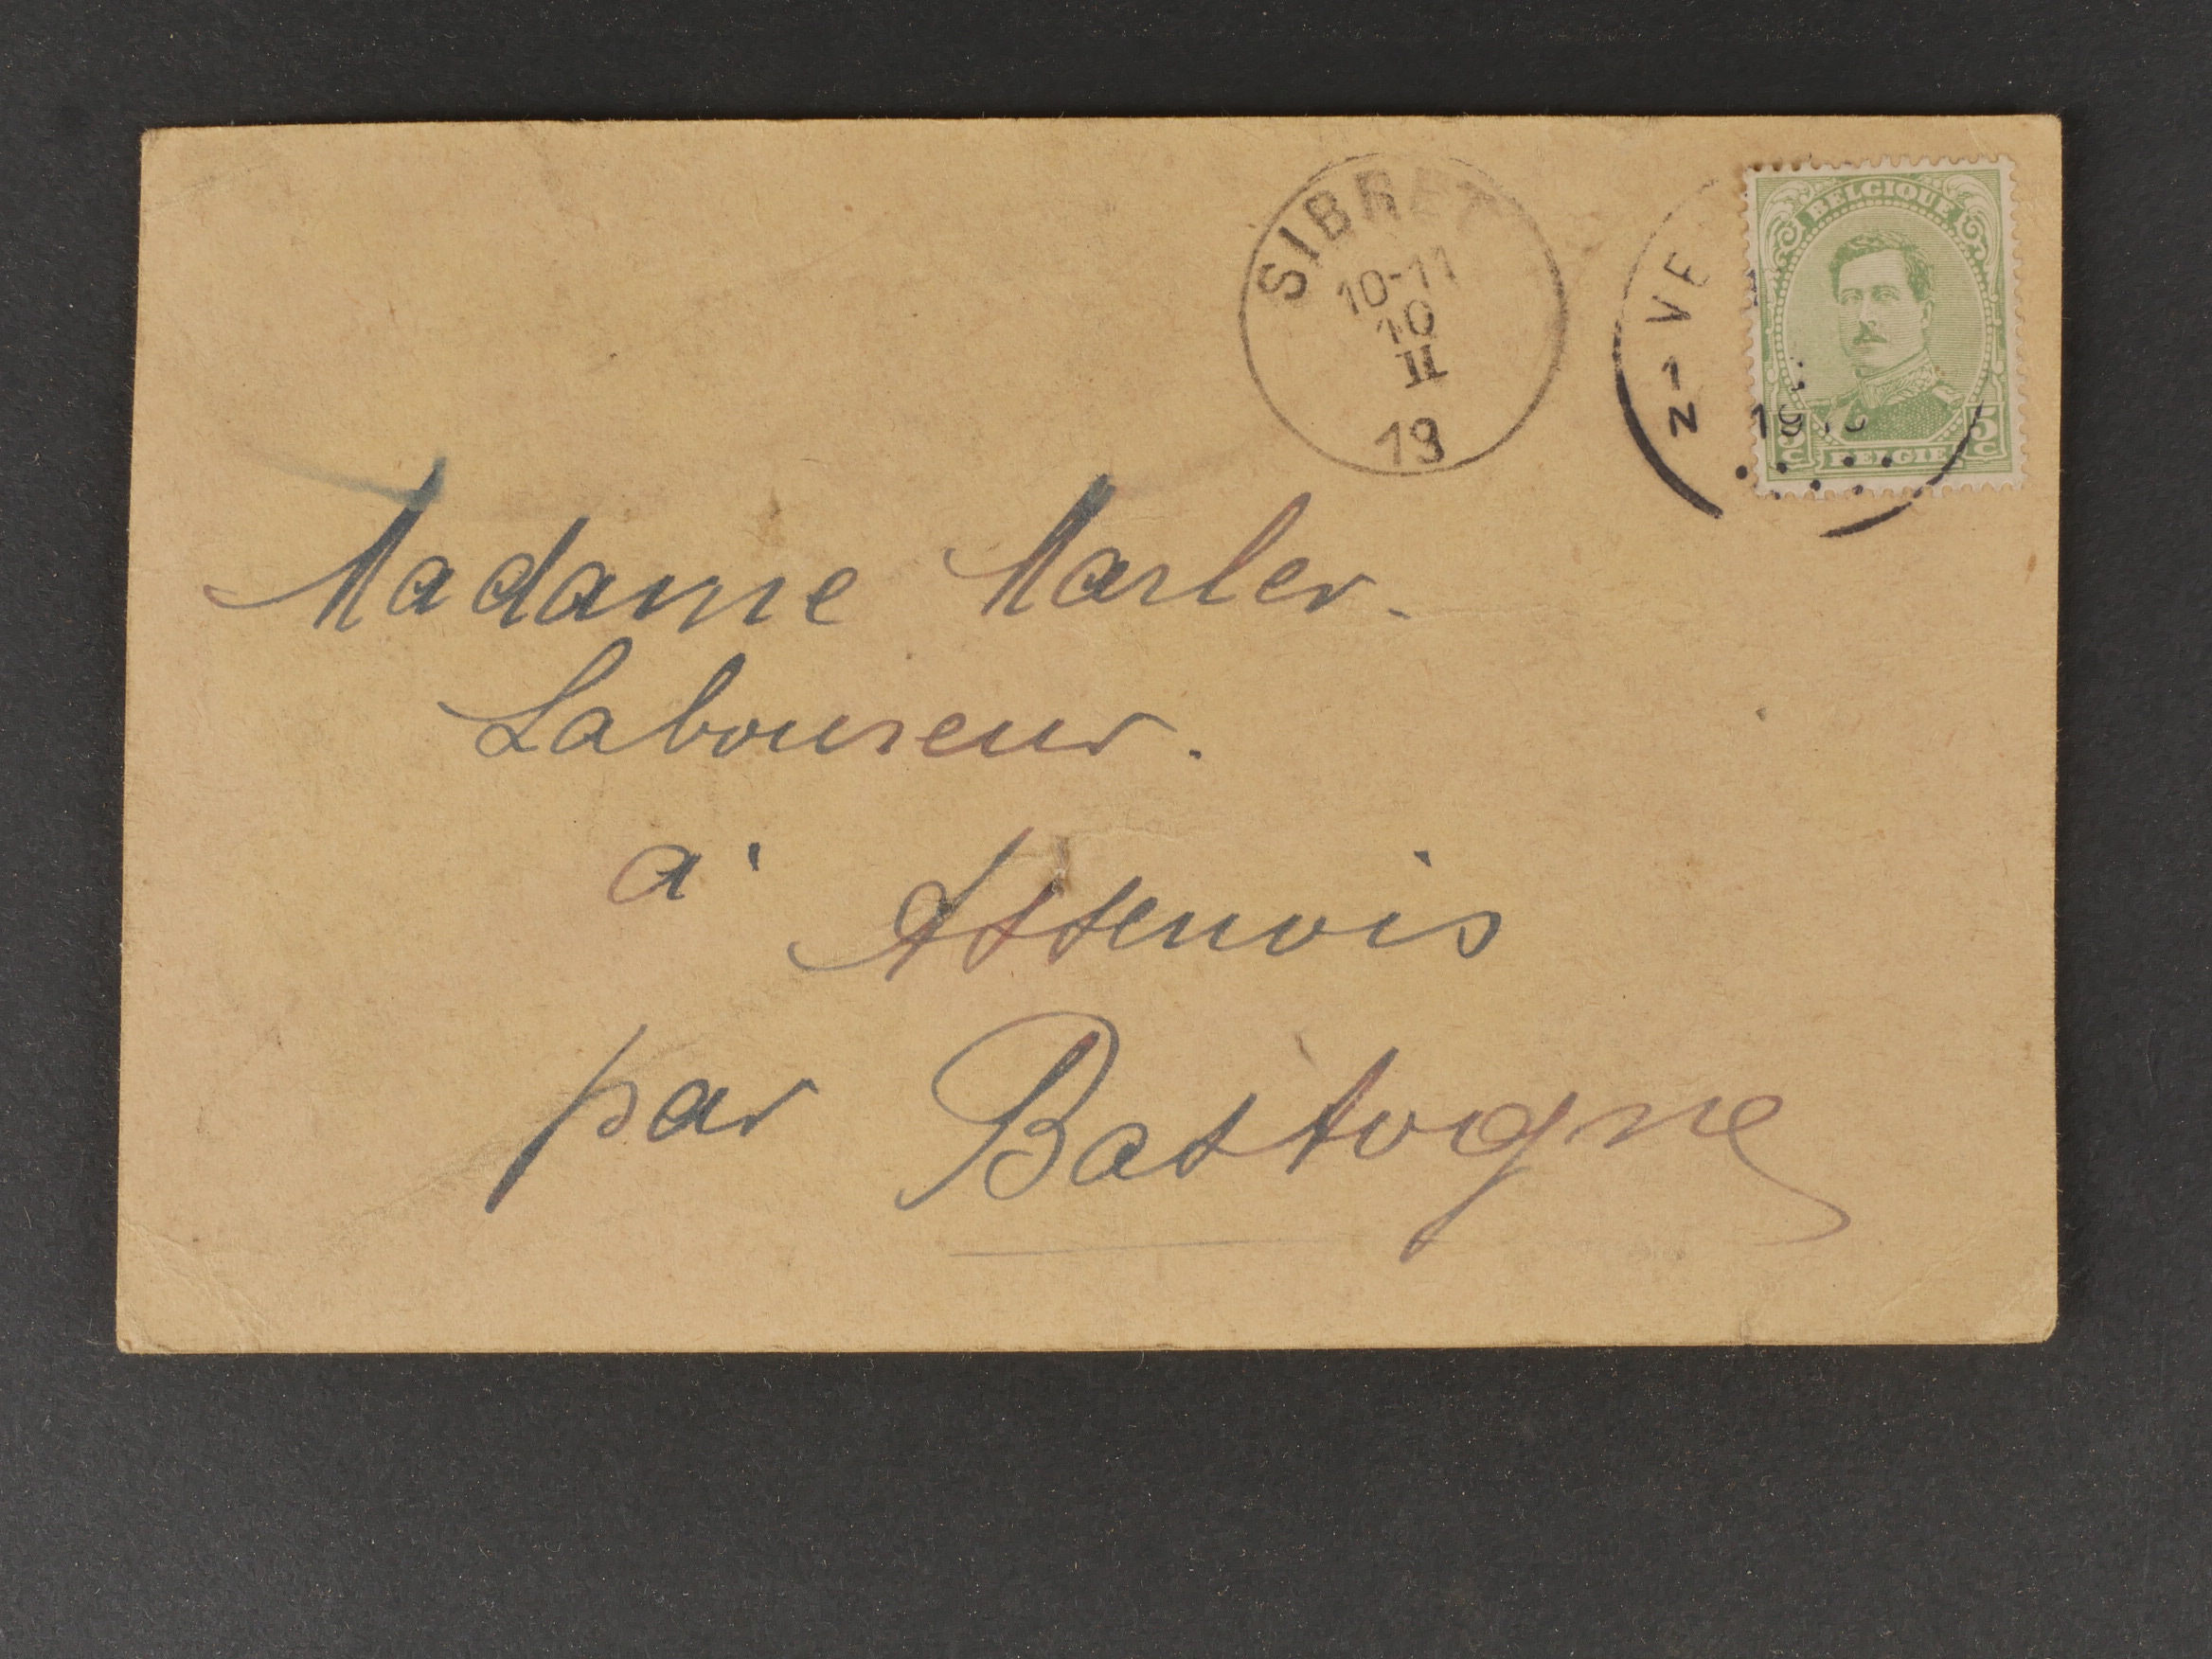 SIBRET
10-11
10
II
19
VE
1
N
BELGIQUE
5 5
C C
BELGIE
Madame Marler.
Laboureur.
à Assenois
par Bastogne